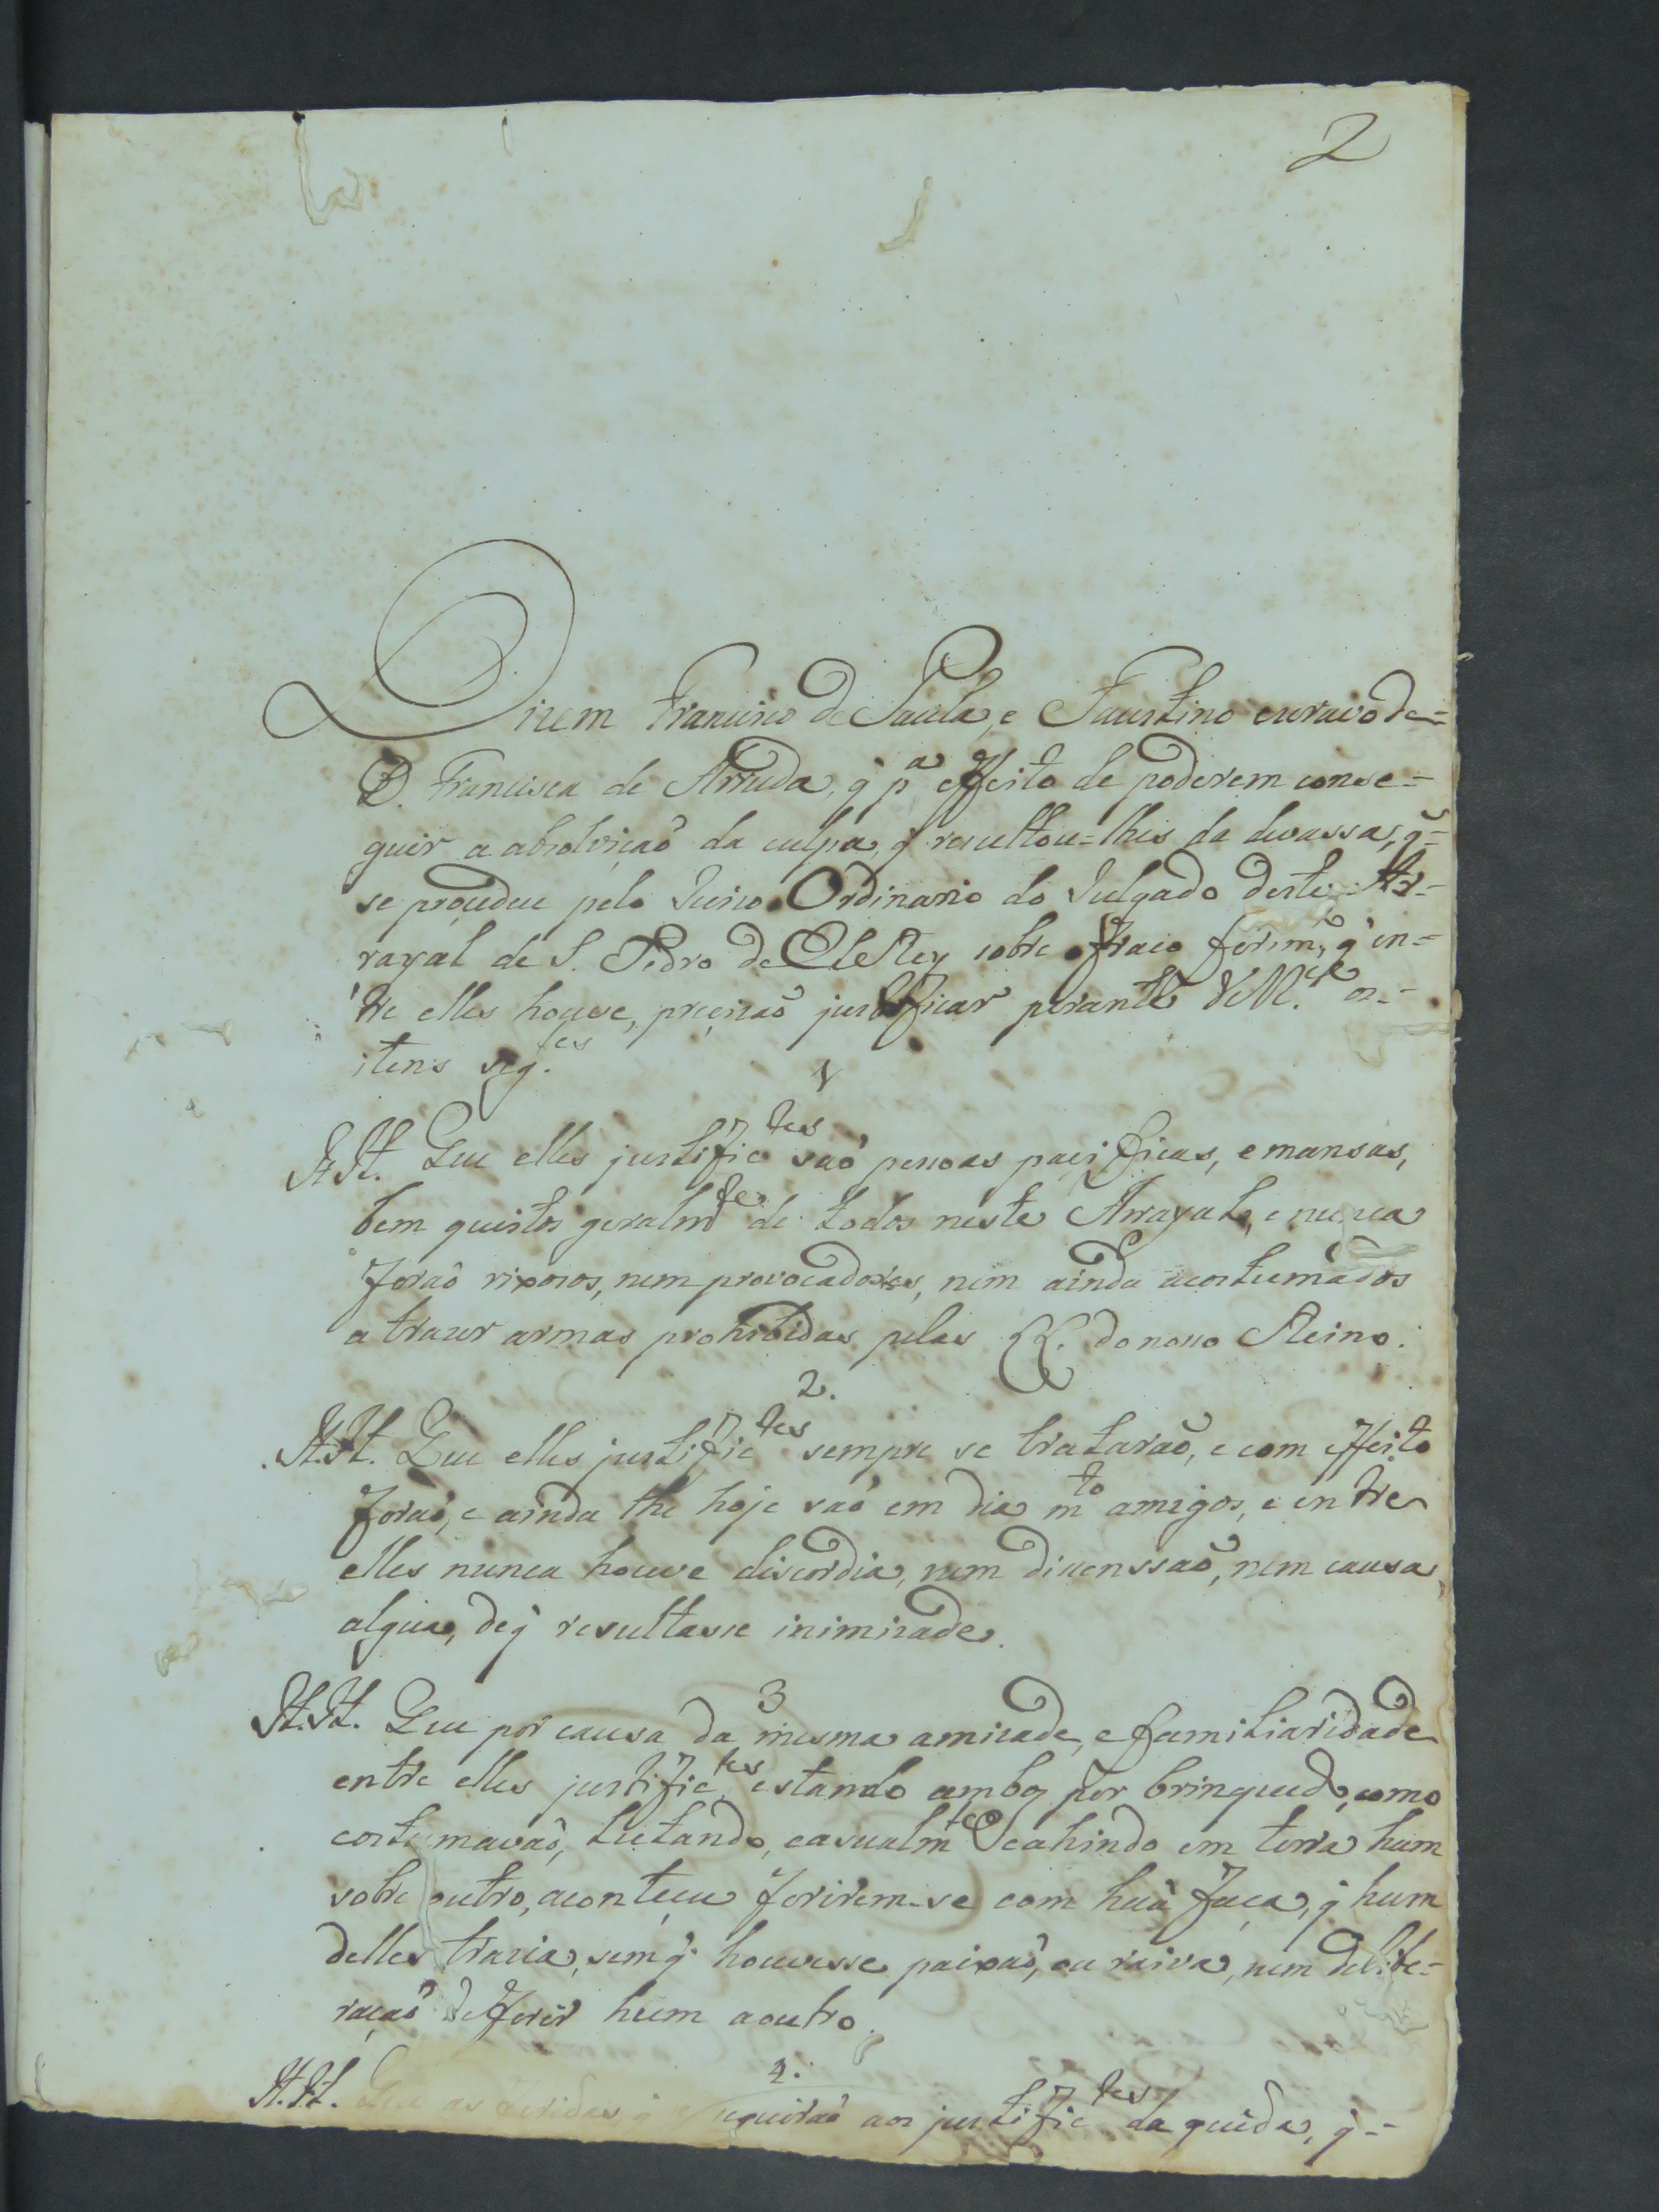 2
Dizem Francisco de Paula, e Faustino escravo de=
D. Francisca de Arruda, q̃ pª effeito de poderem conse=
guir a absolviçaõ da culpa, q̃ resultou=lhes da devassa, q̃=
se procedeu pelo Juizo Ordinario do Julgado deste Ar=
rayal de S. Pedro de ElRey sobre o ferim.to, q̃ en=
tre elles houve, precizaõ justificar perante VM.ce os=
itens seg.es
1
It.It. Que elles justific.tes saõ pessoas pacificas, e mansas,
bem quistos geralm.te de todos neste Arrayal, e nunca
foraõ rixosos, nem provocadores, nem ainda acostumados
a trazer armas prohibidas pelas LL. do nosso Reino.
2.
It.It. Que elles justific.tes sempre se trataraõ, e com effeito
foraõ, e ainda the hoje saõ em dia m.to amigos, e entre
elles nunca houve discordia, nem dicenssaõ, nem causa
algua, de q̃ resultasse inimizade.
3
It.It. Que por causa da mesma amizade, e familiaridade
entre elles justific.tes, estando ambos por brinquedo, como
costumavaõ, lutando, casualm.te cahindo em terra hum
sobre outro, aconteceu ferirem-se com huã faca, q̃ hum
delles trazia, sem q̃ houvesse paixaõ, ou raiva, nem delibe=
raçaõ de ferir hum a outro.
4.
It.It. Que as feridas, q̃ aos justific.tes da queda, q̃=